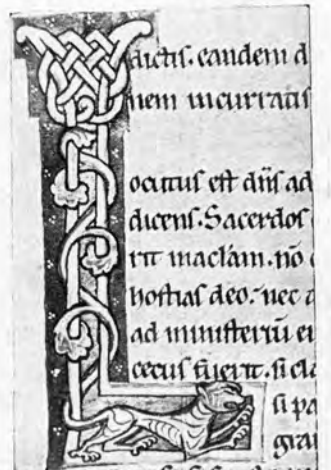 dictis. eandem d
nem incurratis
L
ocutus est dn̄s ad
dicens. Sacerdos
rit maclam. nō
hostias deo. nec a
ad ministeriū ei
cecus fuerit. si cla
si pa
gra